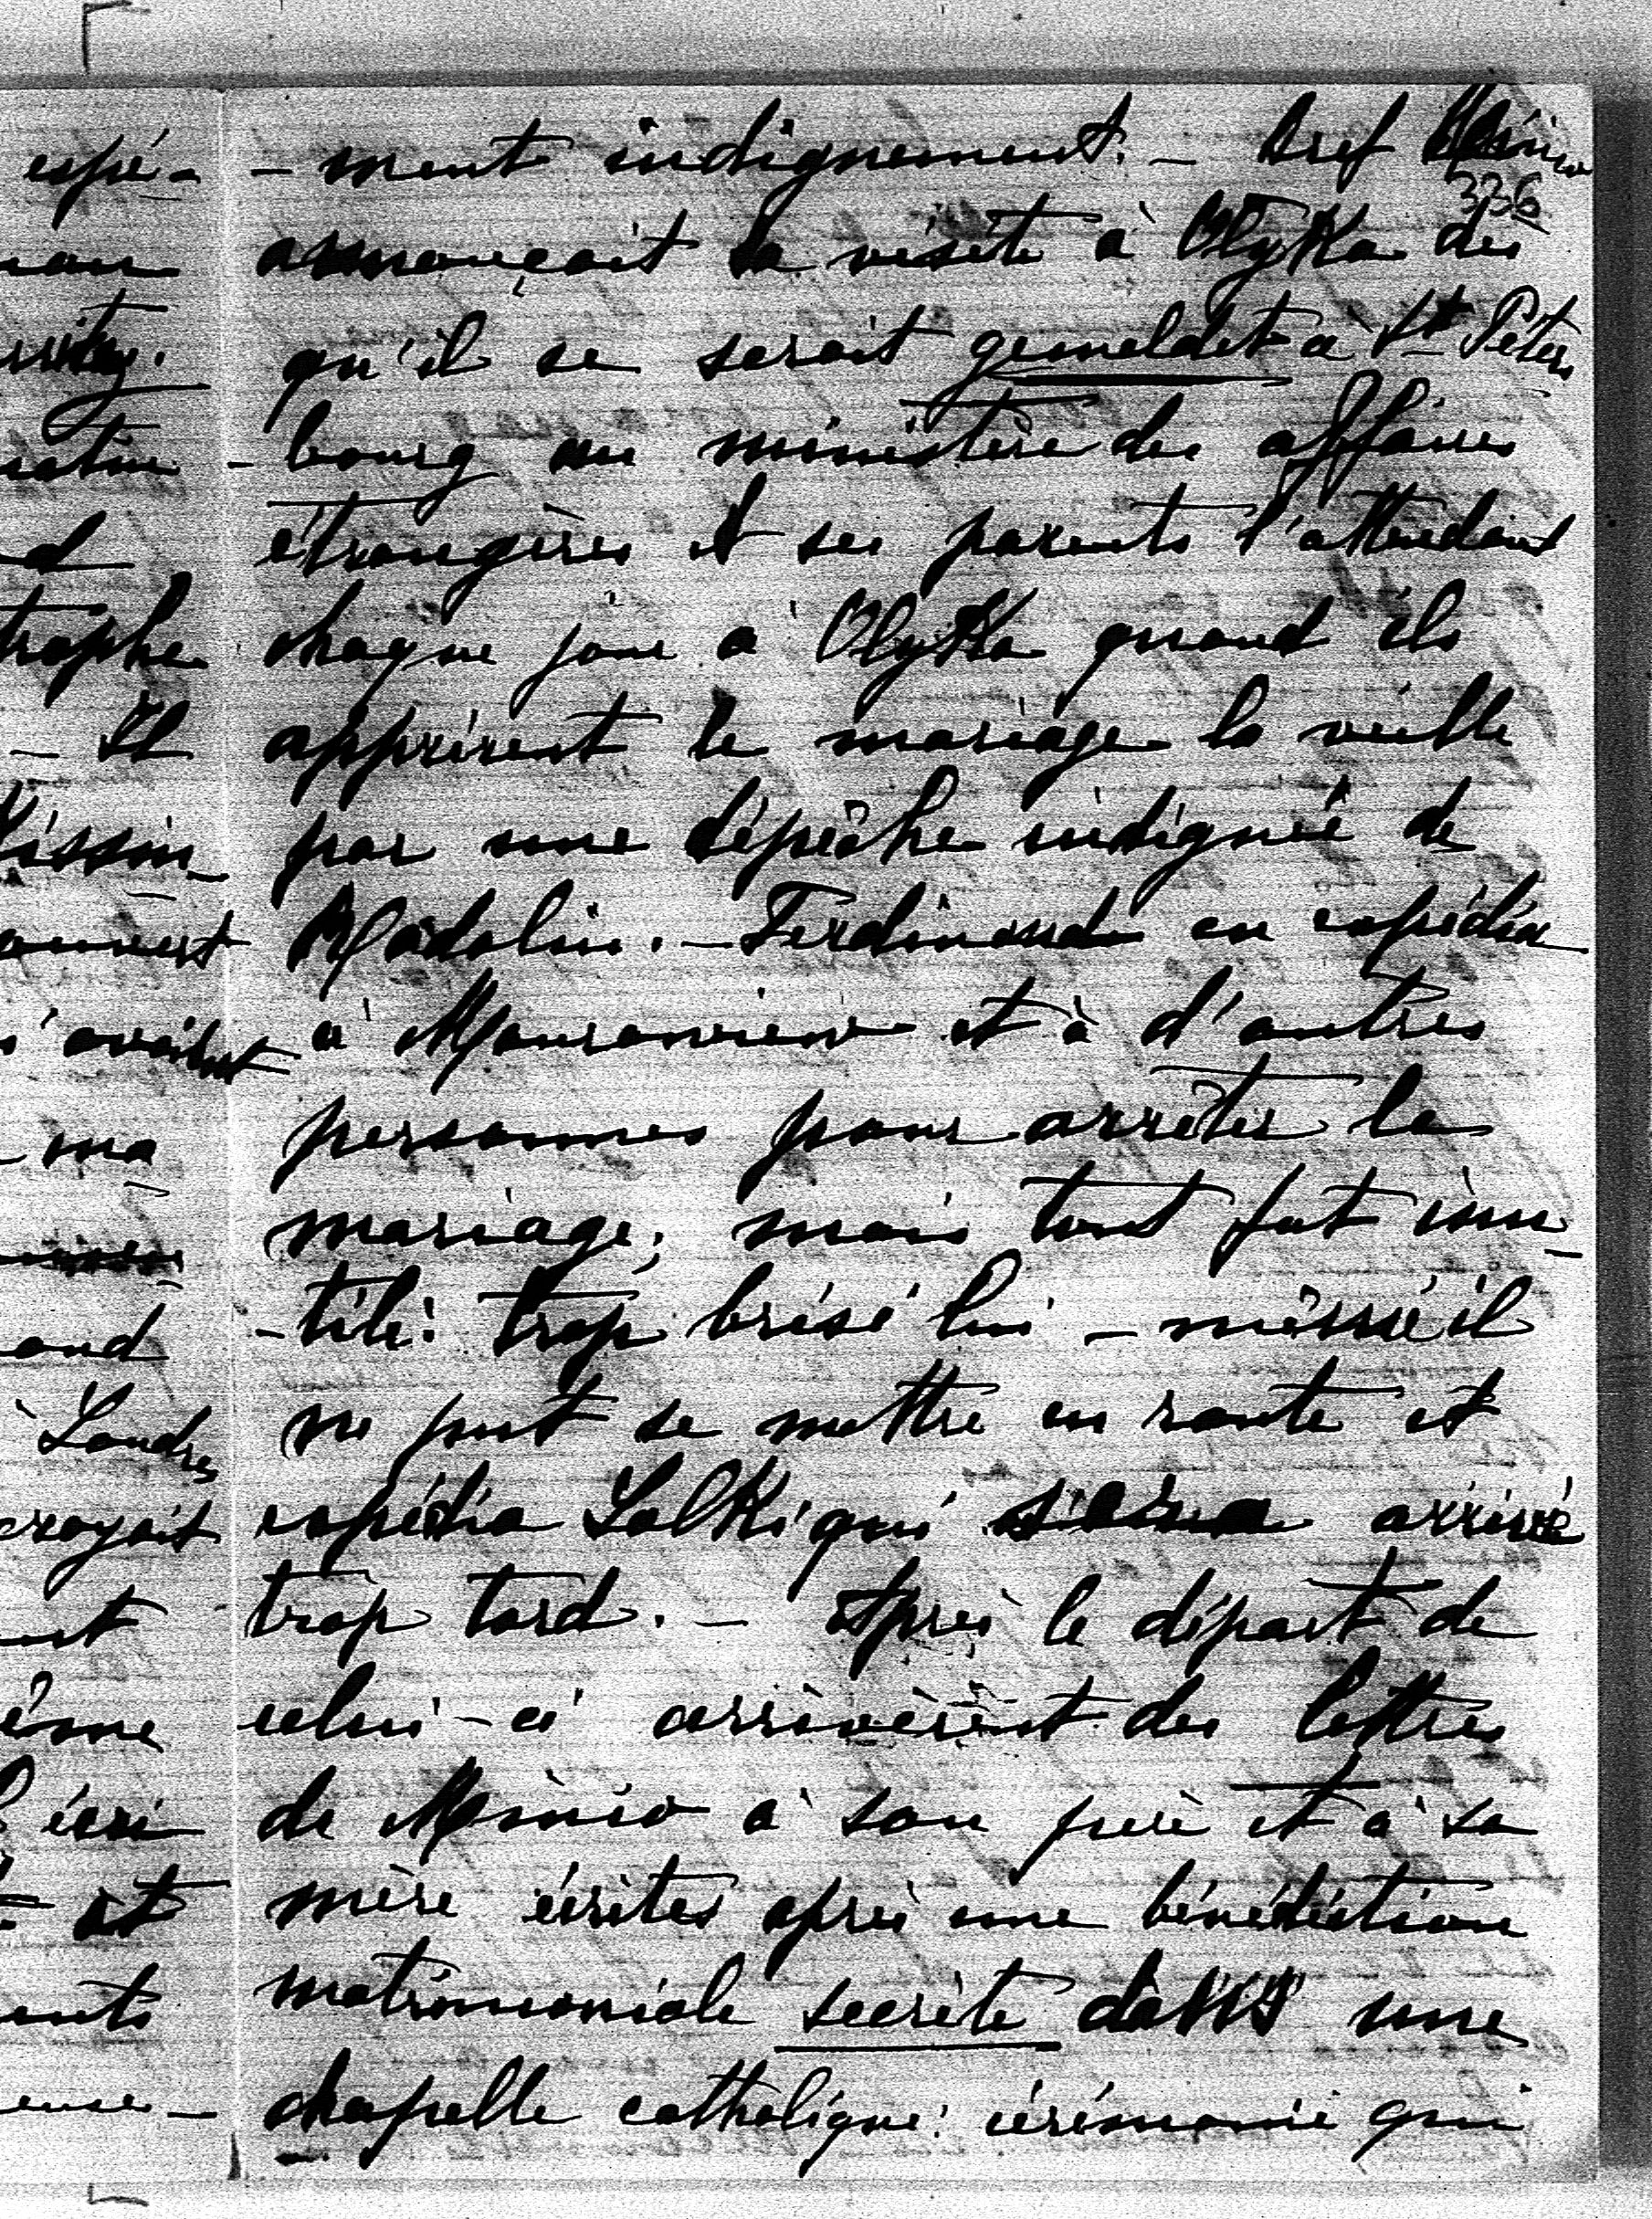 - ment indignement. - Bref Minio
336
annonçait sa visite à Olyka dès
qu'il se serait gemeldet à St Péters
- bourg au ministère des affaires
étrangères et ses parents l'attendaient
chaque jour à Olyka quand ils
apprirent le mariage la veille
par une dépêche indignée de
Madolin. - Ferdinand en expédia
à Mouraview et à d'autres
personnes pour arrêter le
mariage; mais tout fut inu-
-tile: trop brisé lui-même il
ne put se mettre en route et
expédia Solki qui arriva
trop tard. - Après le départ de
celui-ci arrivèrent des lettres
de Minio à son père et à sa
mère écrites après une bénédiction
matrimoniale secrète dans une
chapelle catholique: cérémonie qui
espé-
trophe
- Il
Kissin-
ma
à Londres
croyait
et